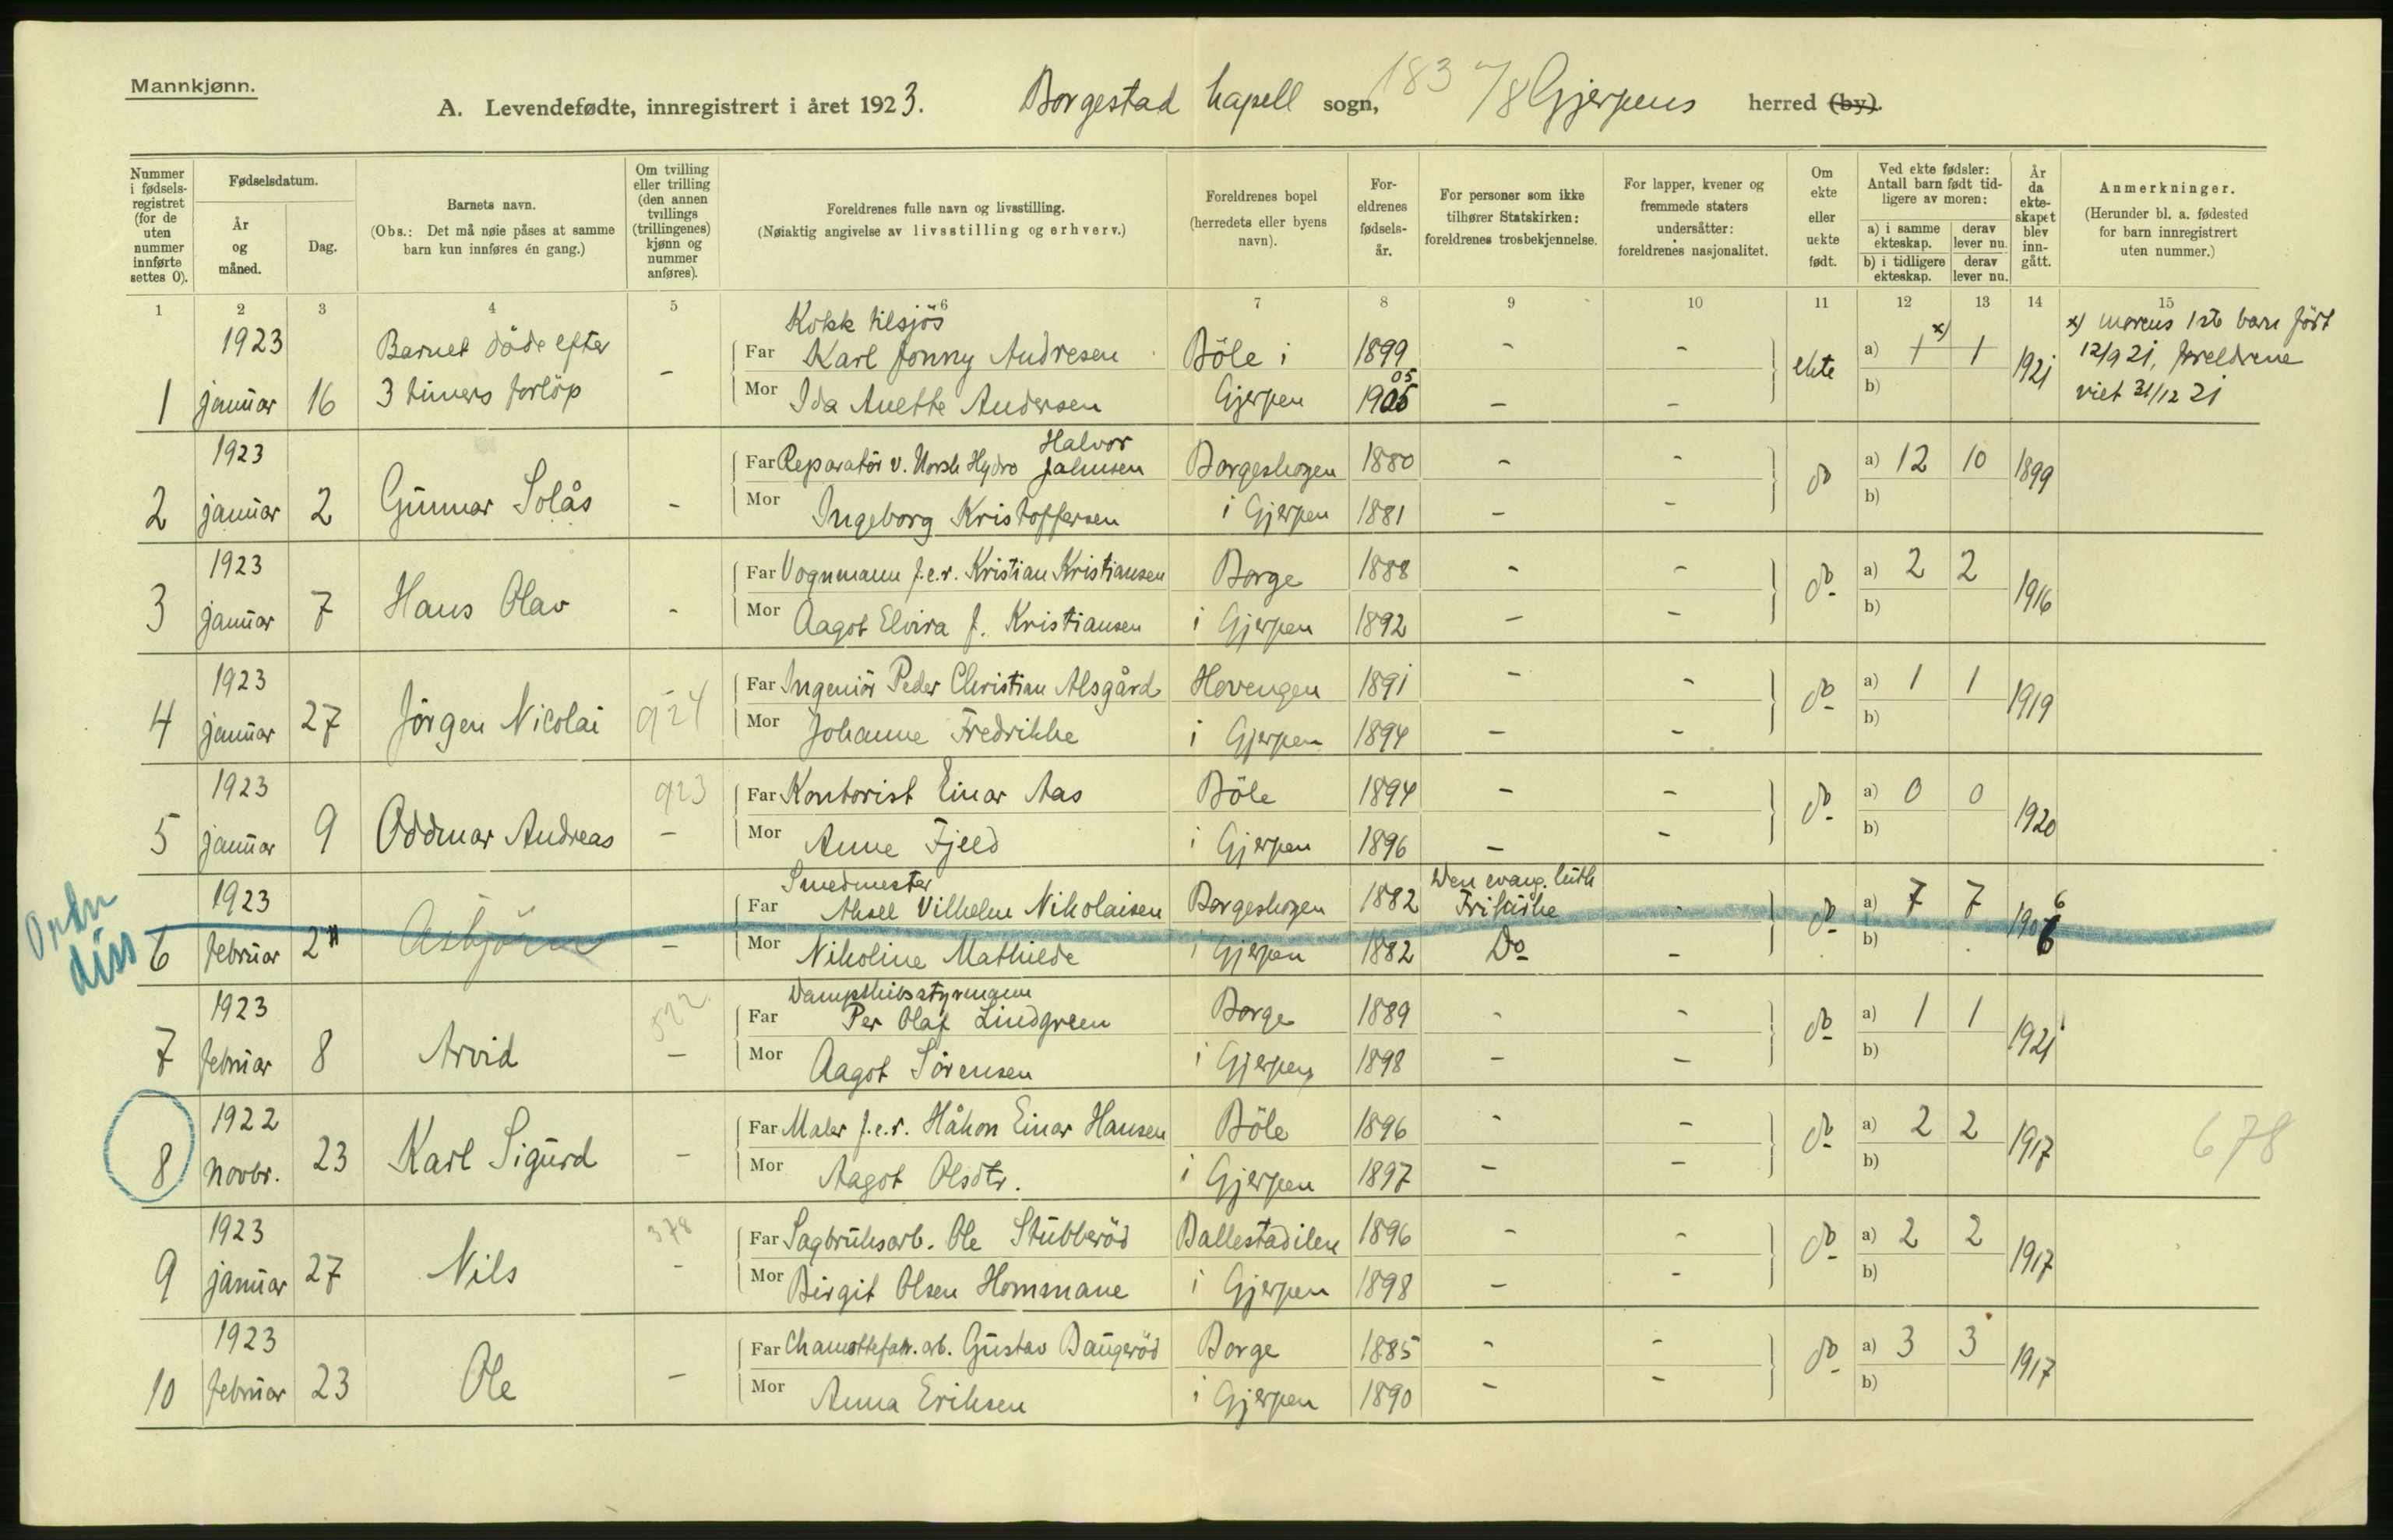 Mannkjønn.
A. Levendefødte, innregistrert i året 1923. Borgestad kapell sogn, 183 7/8 Gjerpens herred (by).
Nummer i fødsels-registret (for de uten nummer innførte settes 0).
Fødselsdatum.
År og måned.
Dag.
Barnets navn.
(Obs.: Det må nøie påses at samme barn kun innføres én gang.)
Om tvilling eller trilling (den annen tvillings (trillingenes) kjønn og nummer anføres).
Foreldrenes fulle navn og livsstilling.
(Nøiaktig angivelse av livsstilling og erhverv.)
Foreldrenes bopel (herredets eller byens navn).
For-eldrenes fødsels-år.
For personer som ikke tilhører Statskirken: foreldrenes trosbekjennelse.
For lapper, kvener og fremmede staters undersåtter: foreldrenes nasjonalitet.
Om ekte eller uekte født.
Ved ekte fødsler: Antall barn født tid-ligere av moren:
a) i samme ekteskap.
derav lever nu.
b) i tidligere ekteskap.
derav lever nu.
År da ekte-skapet blev inn-gått.
Anmerkninger.
(Herunder bl. a. fødested for barn innregistrert uten nummer.)
1 2 3 4 5 6 7 8 9 10 11 12 13 14 15
Kokk tilsjös
1923 Barnet döde efter Far Karl Jonny Andresen Böle i 1899 - - ekte a) 1 x) 1 1921 x) morens 1ste barn född
12/9 21, foreldrene
1 januar 16 3 timers forlöp - Mor Ida Anette Andersen Gjerpen 1905 05 - - b) viet 31/12 21
1923 Far Reparatör v. Norsk Hydro Halvor Jalmsen Borgeskogen 1880 - - do a) 12 10 1899
2 januar 2 Gunnar Solås - Mor Ingeborg Kristoffersen i Gjerpen 1881 - - b)
1923 Far Vognmann f.e.r. Kristian Kristiansen Borge 1888 - - do a) 2 2 1916
3 januar 7 Hans Olav - Mor Aagot Elvira f. Kristiansen i Gjerpen 1892 - - b)
1923 - Far Ingeniör Peder Christian Alsgård Hovengen 1891 - - do a) 1 1 1919
4 januar 27 Jörgen Nicolai 924 Mor Johanne Fredrikke i Gjerpen 1894 - - b)
1923 923 Far Kontorist Einar Aas Böle 1894 - - do a) 0 0 1920
5 januar 9 Oddmar Andreas - Mor Anne Fjeld i Gjerpen 1896 - - b)
Smedmester Den evang. luth
1923 Far Aksel Vilhelm Nikolaisen Borgeskogen 1882 Frikirke - do a) 7 7 1906 6
6 februar 2 Asbjörn - Mor Nikoline Mathilde i Gjerpen 1882 Do - b)
diss
Dampskibsstyrmann
1923 522 Far Per Olaf Lindgreen Borge 1889 - - do a) 1 1 1921
7 februar 8 Arvid - Mor Aagot Sörensen i Gjerpen 1898 - - b)
1922 Far Maler f.e.r. Håkon Einar Hansen Böle 1896 - - do a) 2 2 1917 678
8 novbr. 23 Karl Sigurd - Mor Aagot Olsdtr. i Gjerpen 1897 - - b)
1923 378 Far Sagbruksarb. Ole Stubberöd Ballestadilen 1896 - - do a) 2 2 1917
9 januar 27 Nils - Mor Birgit Olsen Hommane i Gjerpen 1898 - - b)
1923 Far Chamottefabr. arb. Gustav Baugeröd Borge 1885 - - do a) 3 3 1917
10 februar 23 Ole - Mor Anna Eriksen i Gjerpen 1890 - - b)